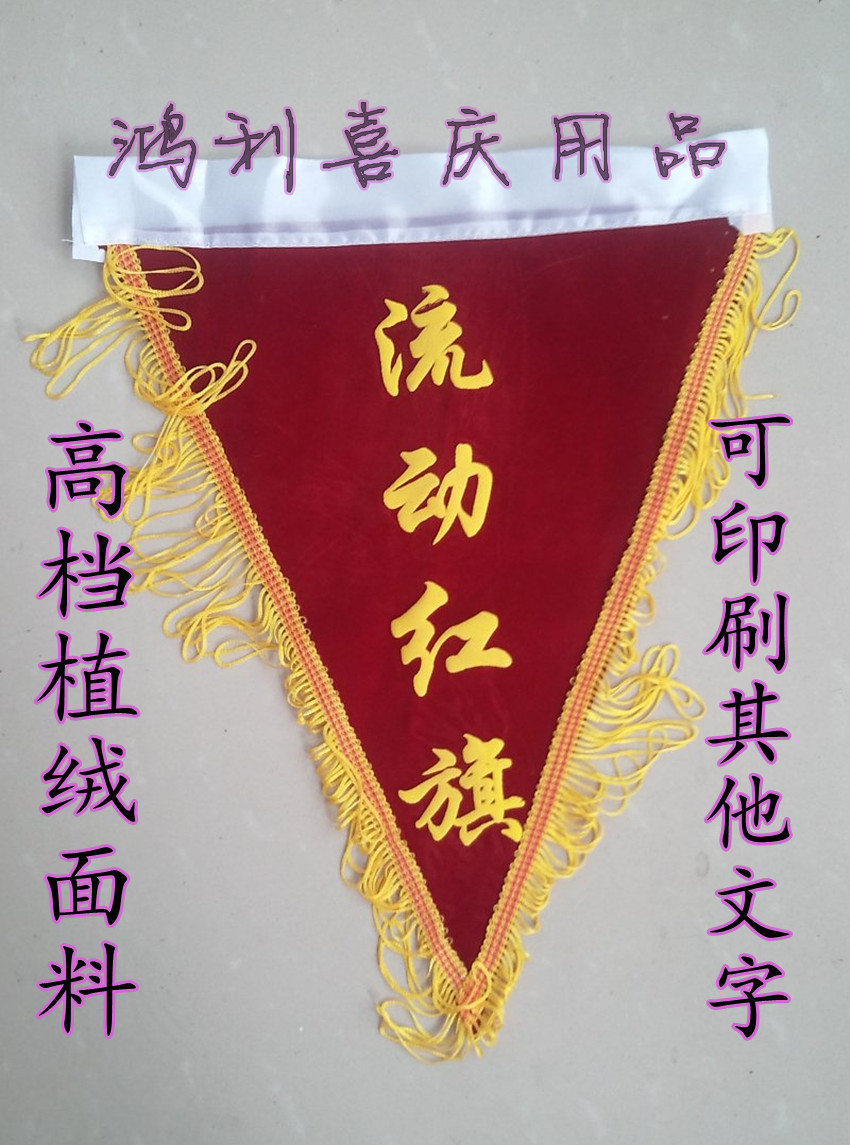 鸿利喜庆用品
流动红旗
高档植绒面料
可印刷其他文字